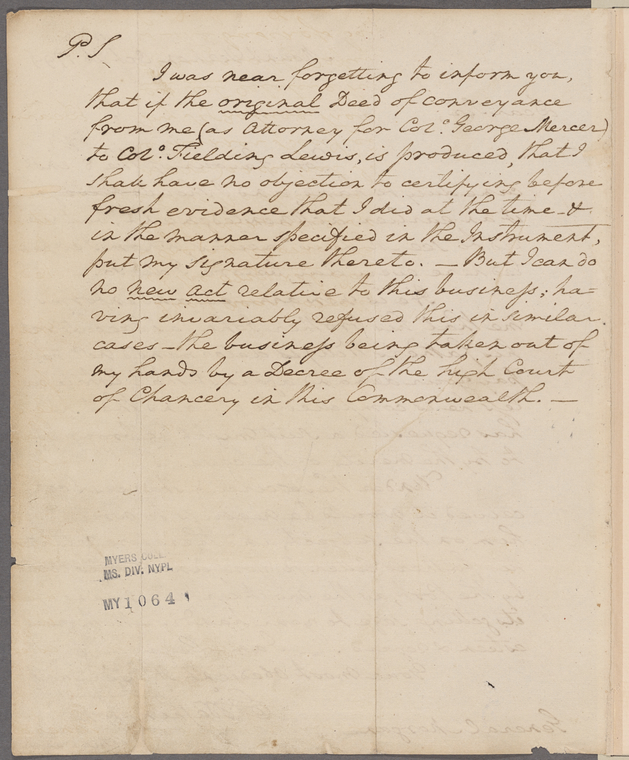 P.S
I was near forgetting to inform you,
that if the original Deed of conveyance
from me (as Attorney for Colo. George Mercer)
to Colo. Fielding Lewis, is produced, that I
shall have no objection to certifying before
fresh evidence that I did at the time &
in the manner specified in the Instrument,
put my signature thereto. — But I can do
no new act relative to this business; ha=
ving invariably refused this in similar
cases — the business being taken out of
my hands by a Decree of the high Court
of Chancery in this Commonwealth. —
MYERS COLL
MS. DIV. NYPL
MY 1064